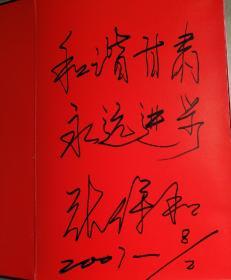 和谐甘肃
永远进步
张保和
2007-8/2